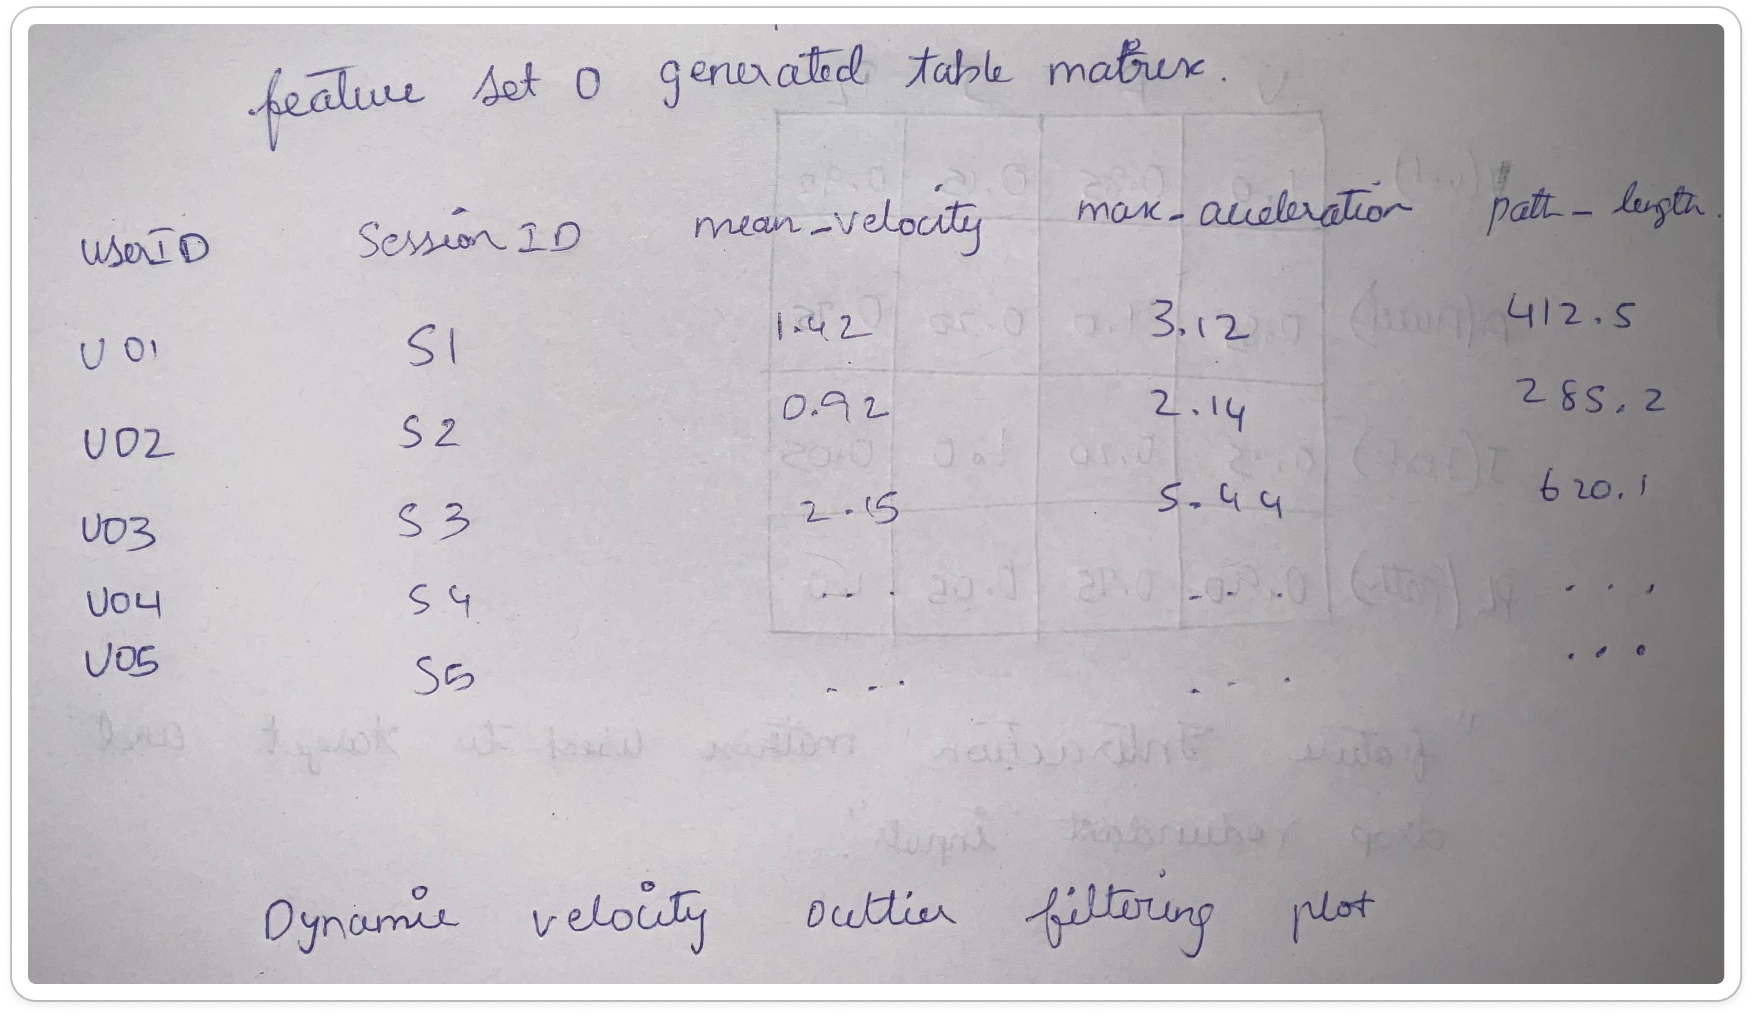 feature set 0 generated table matrix.
UserID Session ID mean-velocity max-acceleration path-length.
U01 S1 1.42 3.12 412.5
U02 S2 0.92 2.14 285.2
U03 S3 2.15 5.44 620.1
U04 S4 ... ... ...
U05 S5 ... ... ...
Dynamic velocity outlier filtering plot